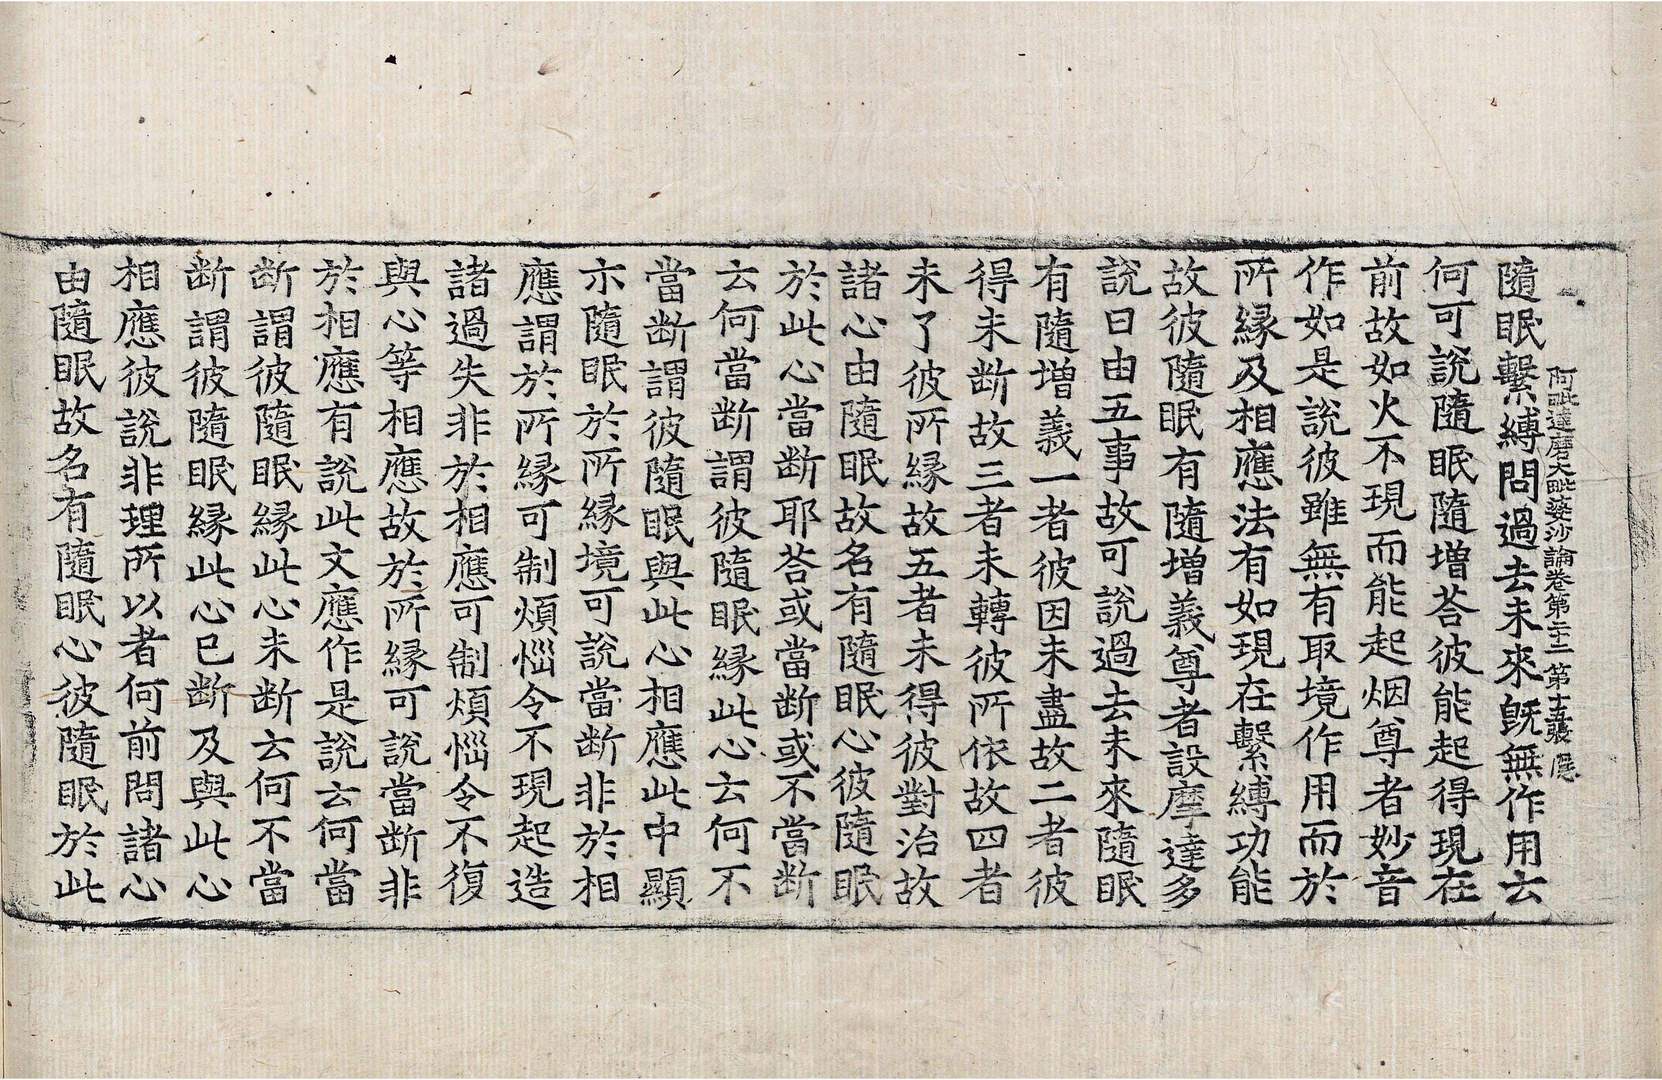 阿毗達磨大毗婆沙論卷第二十二　第十五張　隱
隨眠繫縛問過去未來旣無作用去
何可說隨眠隨增荅彼能起得現在
前故如火不現而能起烟尊者妙音
作如是說彼雖無有取境作用而於
所緣及相應法有如現在繫縛功能
故彼隨眠有隨增義尊者設摩達多
說曰由五事故可說過去未來隨眠
有隨增義一者彼因未盡故二者彼
得未断故三者未轉彼所依故四者
未了彼所緣故五者未得彼對治故
諸心由隨眠故名有隨眠心彼隨眠
於此心當断耶荅或當断或不當断
云何當断謂彼隨眠緣此心云何不
當断謂彼隨眠與此心相應此中顯
示隨眠於所緣境可說當断非於相
應謂於所緣可制煩惱令不現起造
諸過失非於相應可制煩惱令不復
與心等相應故於所緣可說當断非
於相應有說此文應作是說云何當
断謂彼隨眠緣此心未断云何不當
断謂彼隨眠緣此心已断及與此心
相應彼說非理所以者何前問諸心
由隨眠故名有隨眠心彼隨眠於此